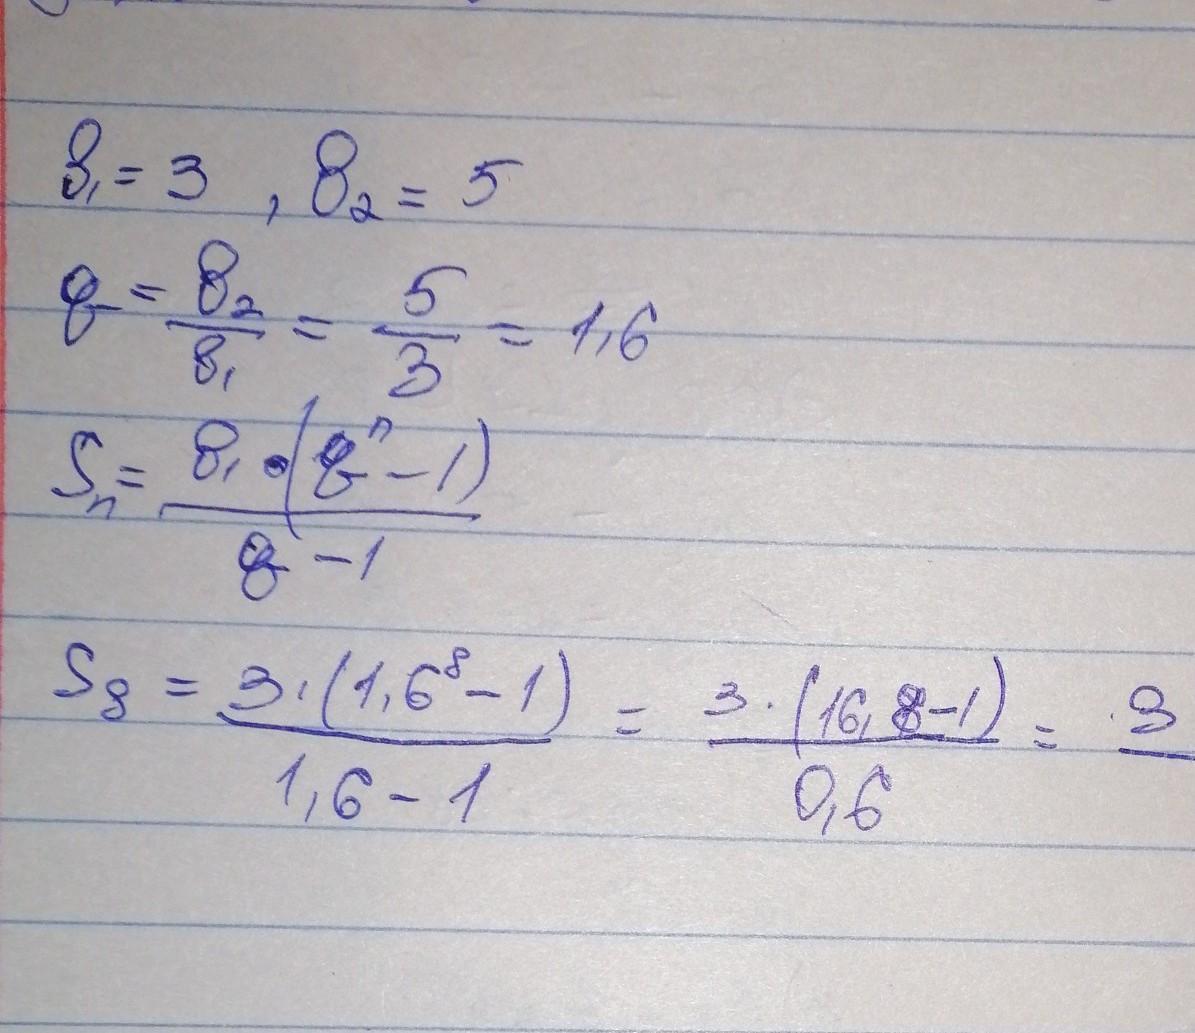 в₁ = 3 , в₂ = 5
q = в₂/в₁ = 5/3 = 1,6
Sₙ = в₁ · (qⁿ - 1) / q - 1
S₈ = 3 · (1,6⁸ - 1) / 1,6 - 1 = 3 · (16,8 - 1) / 0,6 = 3